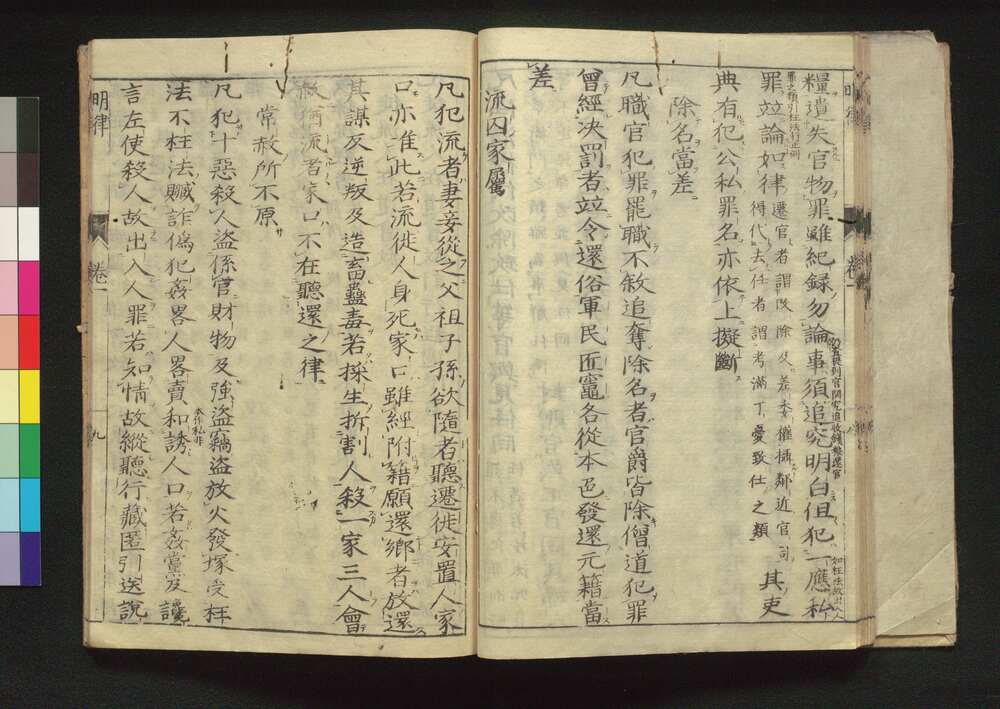 糧遺失官物罪雖紀録勿論事須追究明白但犯一應私
罪竝論如律遷官者謂改除及差委權攝鄰近官司
得代去任者謂考滿丁憂致仕之類其吏
典有犯公私罪名亦依上擬斷
除名當差
凡職官犯罪罷職不敘追奪除名者官爵皆除僧道犯罪
曾經決罰者竝令還俗軍民匠竈各從本色發還元籍當
差
流囚家屬
凡犯流者妻妾從之父祖子孫欲隨者聽遷徙安置人家
口亦准此若流徙人身死家口雖經附籍願還鄉者放還
其謀反逆叛及造畜蠱毒若採生拆割人殺一家三人會
赦猶流者家口不在聽還之律
常赦所不原
凡犯十惡殺人盜係官財物及強盜竊盜放火發塚受枉
法不枉法贓詐偽犯姦畧人畧賣和誘人口若姦黨及讒
言左使殺人故出入人罪若知情故縱聽行藏匿引送說
明律
卷一
九